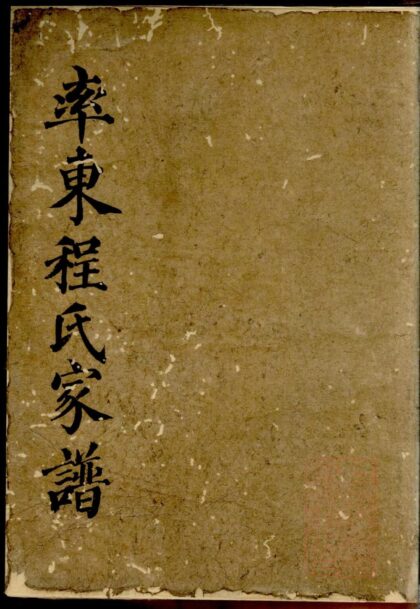 率東程氏家譜